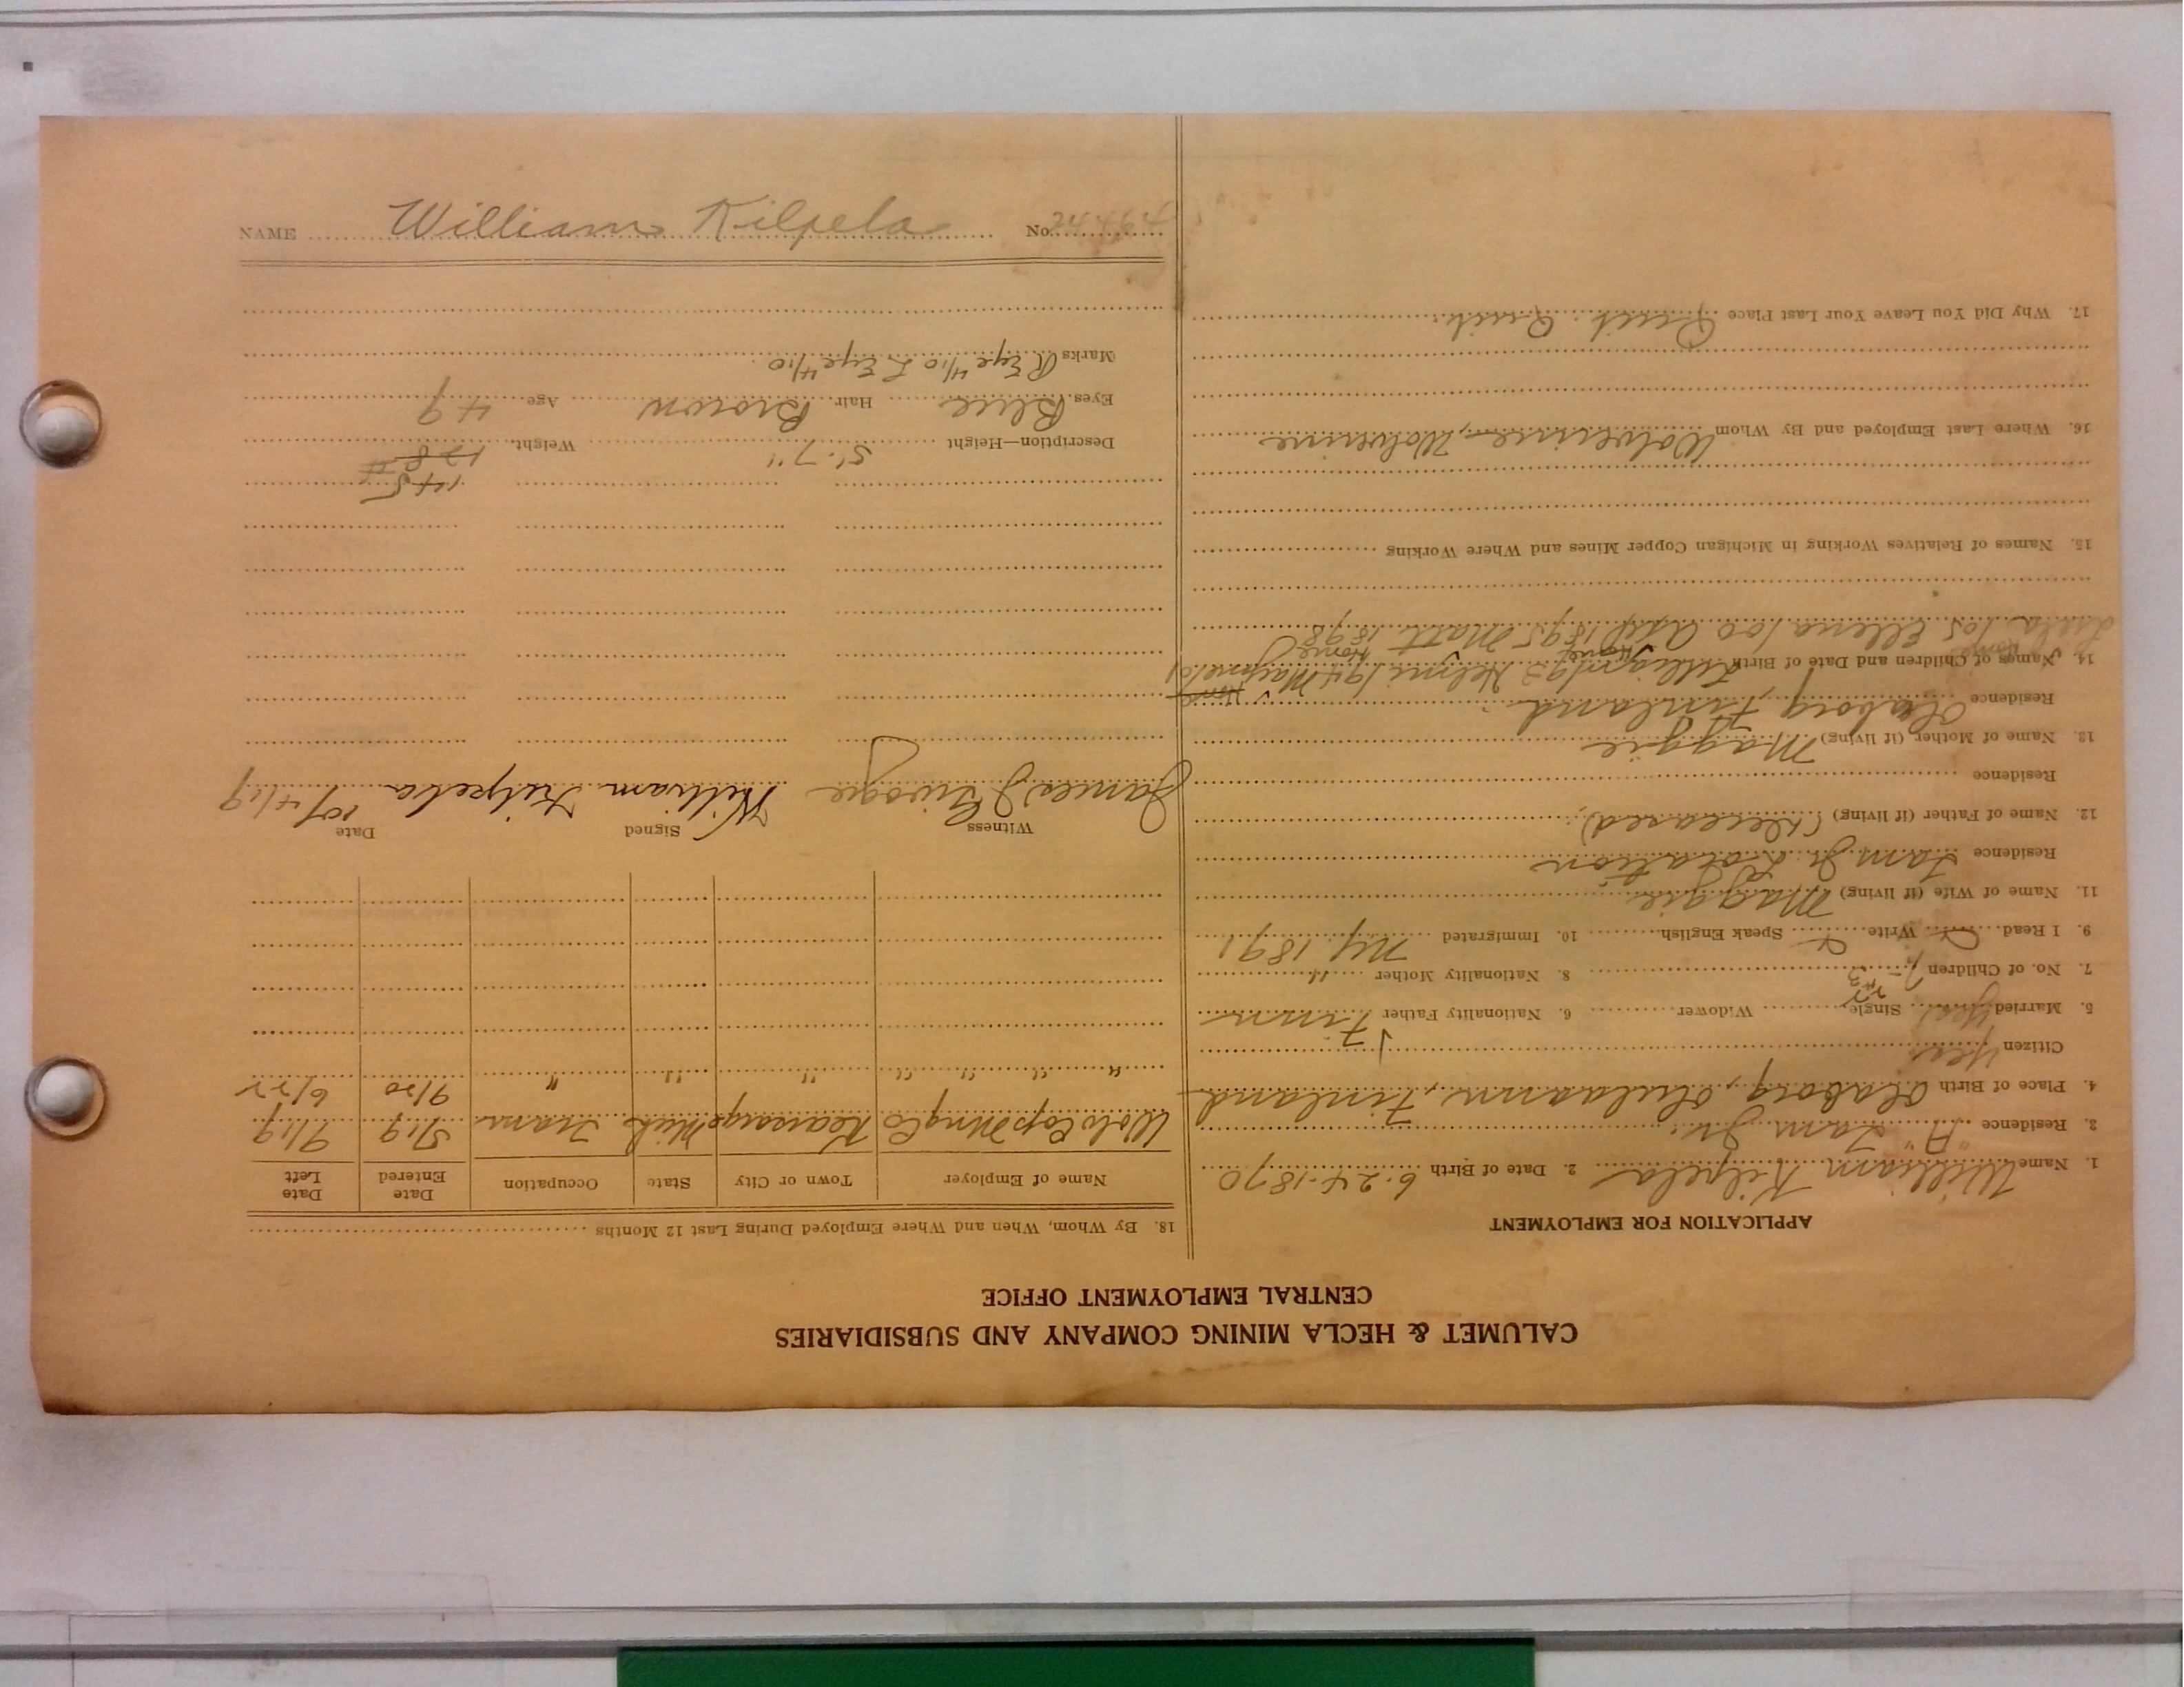 CALUMET & HECLA MINING COMPANY AND SUBSIDIARIES
CENTRAL EMPLOYMENT OFFICE
APPLICATION FOR EMPLOYMENT
1. Name William Kilpela 2. Date of Birth 6-24-1870
3. Residence "A" Tam Jr.
4. Place of Birth Olaborg, Finland
Citizen Yes
5. Married Yes Single Widower 6. Nationality Father Finn
7. No. of Children 7 8. Nationality Mother "
9. I Read Write Speak English 10. Immigrated Ny. 1891
11. Name of Wife (if living) Maggie
Residence Tam Jr. Location
12. Name of Father (if living) (Deceased)
Residence
13. Name of Mother (if living) Maggie
Residence Olaborg Finland
14. Names of Children and Date of Birth Helmi 194
105 Ellena 100 1895 Matt 1898
15. Names of Relatives Working in Michigan Copper Mines and Where Working
16. Where Last Employed and By Whom Wolverine, Wolverine
17. Why Did You Leave Your Last Place Quit. Quit.
18. By Whom, When and Where Employed During Last 12 Months
Name of Employer Town or City State Occupation Date Entered Date Left
Wolv Cop Mng Co Kearsarge Mich Tram 5/19 9/19
" " " " " " " 9/20 6/22
Witness Signed Date
James J William Kilpela 10/4/19
145
Description—Height 5'-7" Weight 128
Eyes Blue Hair Brown Age 49
Marks R Eye 4/10 L Eye 4/10
NAME William Kilpela No.